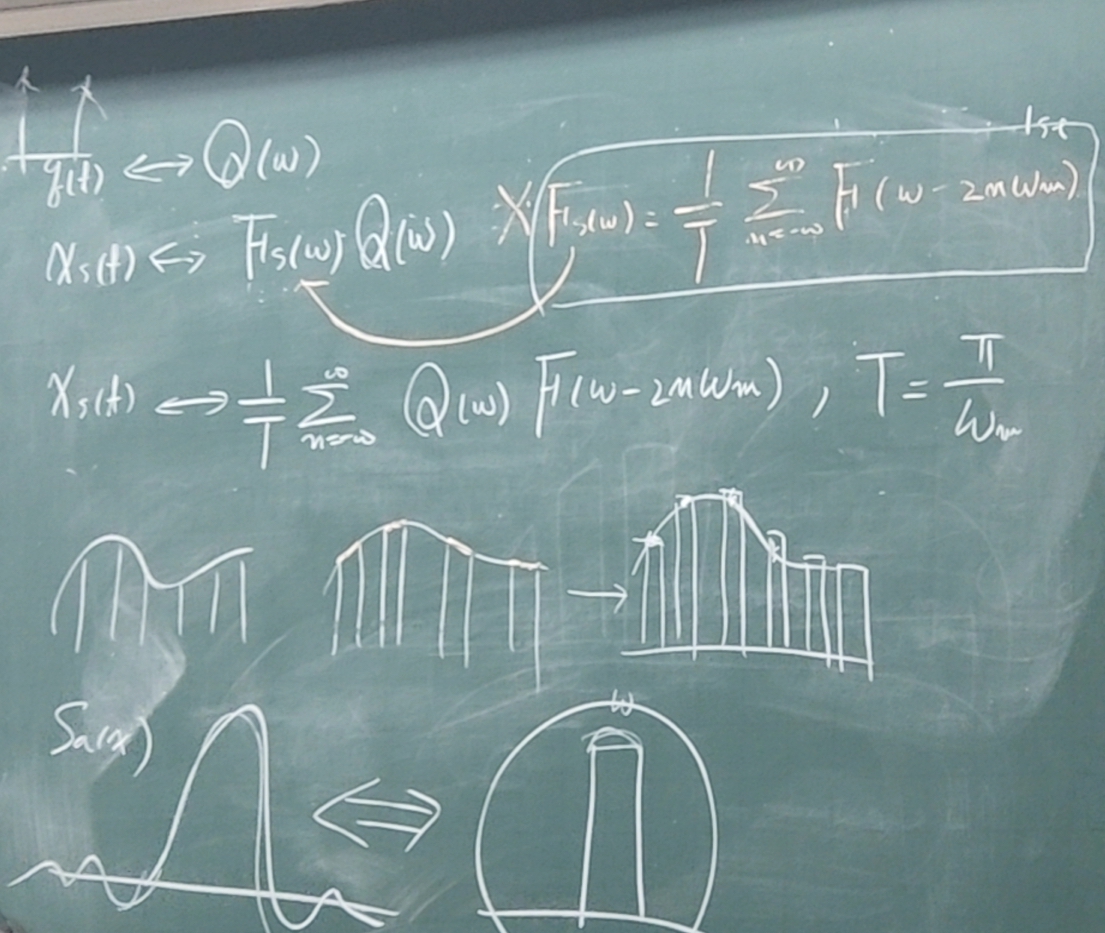 q(t) ↔ Q(ω)
Xs(t) ↔ Fs(ω) Q(ω) X Fs(ω) = 1/T ∑_{n=-∞}^{∞} F(ω - 2nωm)
Xs(t) ↔ 1/T ∑_{n=-∞}^{∞} Q(ω) F(ω - 2nωm), T = π/ωm
Sa(x)
ω